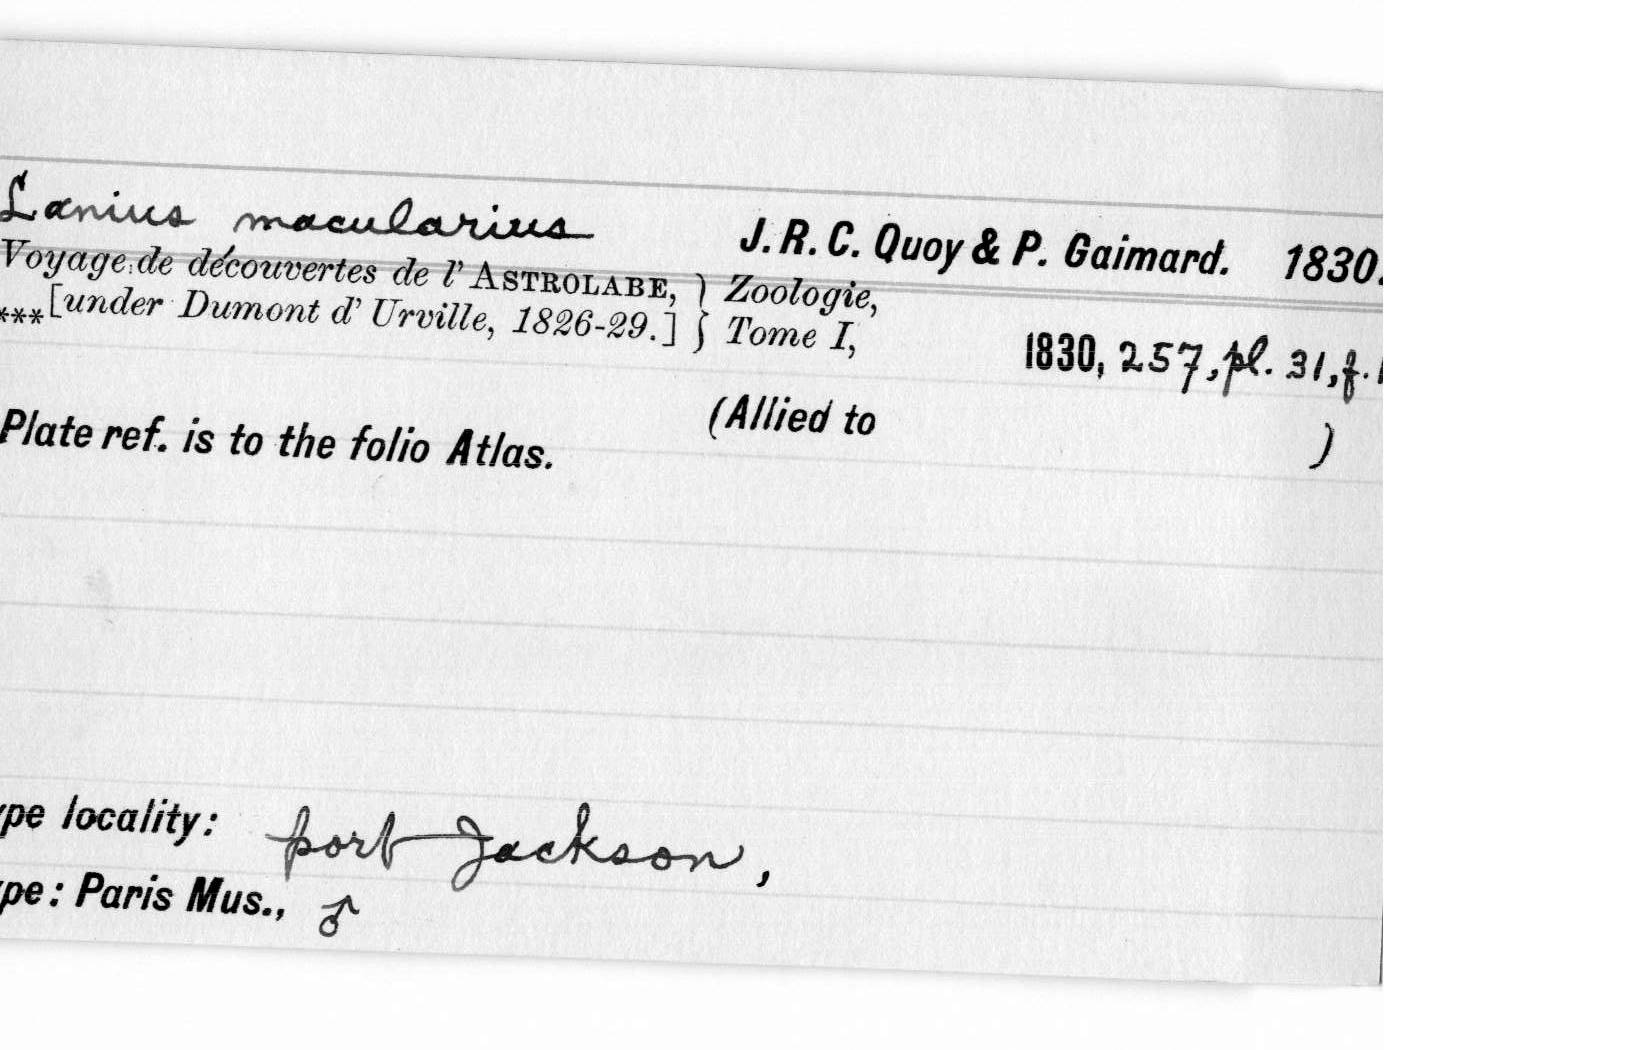 Lanius macularius J. R. C. Quoy & P. Gaimard. 1830.
Voyage de découvertes de l' ASTROLABE, } Zoologie,
***[under Dumont d' Urville, 1826-29.] } Tome I,
1830, 257, pl. 31, f. 1
(Allied to )
Plate ref. is to the folio Atlas.
ype locality: port Jackson,
ype: Paris Mus., ♂